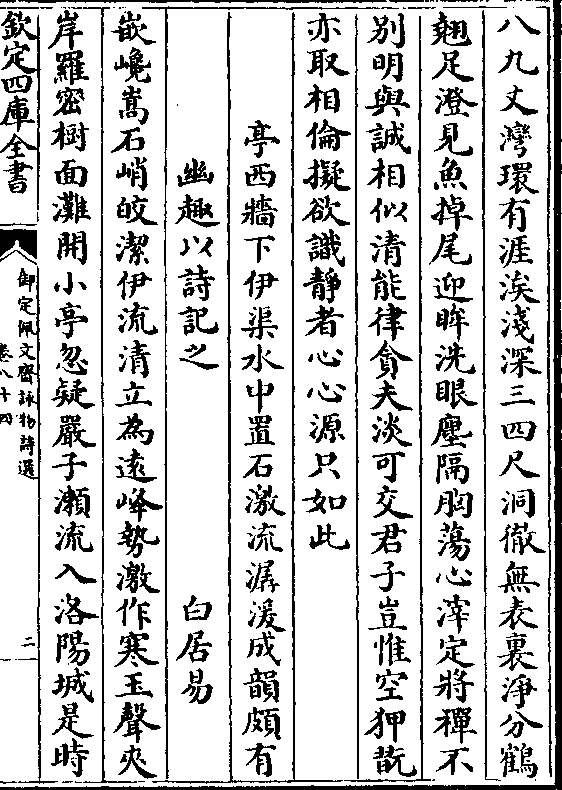 八九丈灣環有涯涘淺深三四尺洞徹無表裏淨分鶴
翹足澄見魚掉尾迎眸洗眼塵隔胸蕩心滓定將禪不
别明與誠相似清能律貪夫淡可交君子豈惟空狎翫
亦取相倫擬欲識靜者心心源只如此
亭西牆下伊渠水中置石激流潺湲成韻頗有
幽趣以詩記之
白居易
嵌巉嵩石峭皎潔伊流清立為逺峰勢激作寒玉聲夾
岸羅密樹面灘開小亭忽疑嚴子瀨流入洛陽城是時
欽定四庫全書
御定佩文齋詠物詩選
卷八十四
二